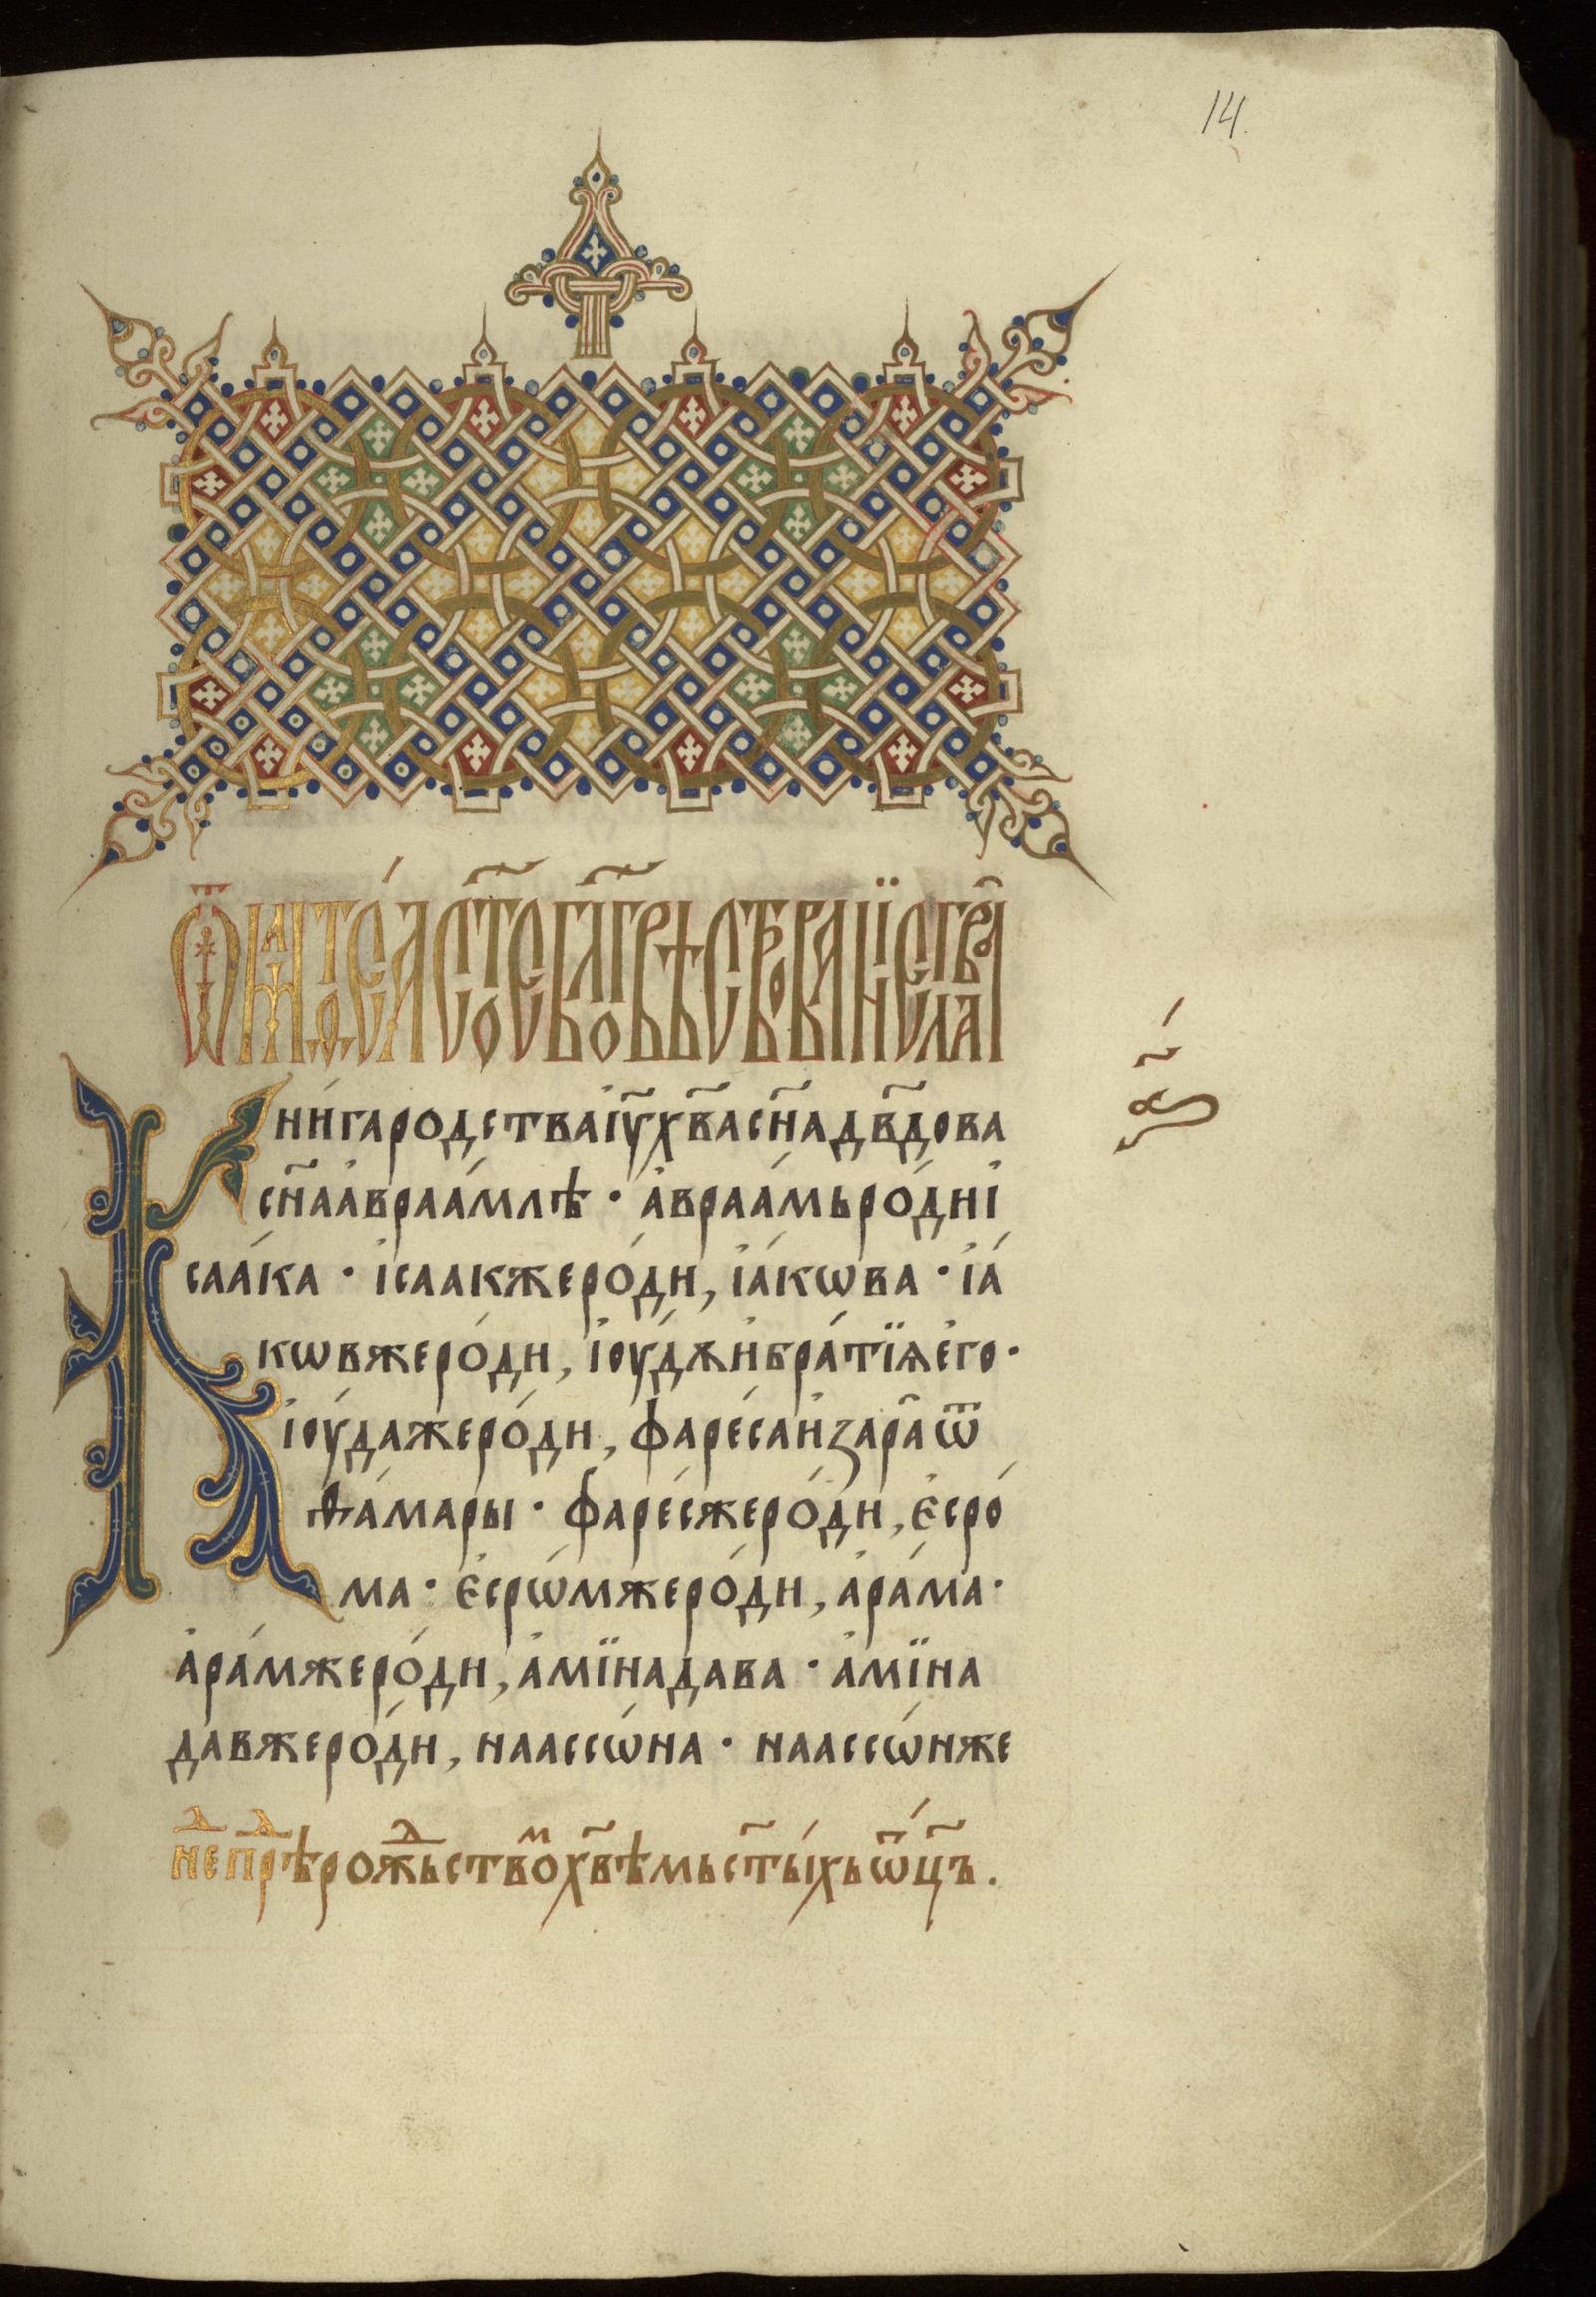 14.
Ѿ маѳеа ст҃ое бл҃говѣствованїе глава
а҃
Кни́гародстваі҆ў҃хв҃асн҃адв҃дова
сн҃аа҆враа́млѣ · а҆враа́мьро́диі҆
саа́ка · і҆саакжеро́ди, і҆а́кѡва · і҆а́
кѡвжеро́ди, і҆оу́дѫи҆бра́тїѧе҆го ·
і҆оу́дажеро́ди, фаре́саи҆зара҃ѿ
ѳа́мары · фаре́сжеро́ди, є҆сро́
ма · є҆срѡ́мжеро́ди, а҆ра́ма ·
а҆ра́мжеро́ди, а҆мїнадава · а҆мїна
да́вжеро́ди, наассѡ́на · наассѡ́нже
недпрⷣѣрожⷣьствомхв҃ѣмьст҃ы́хьѿц҃ъ.